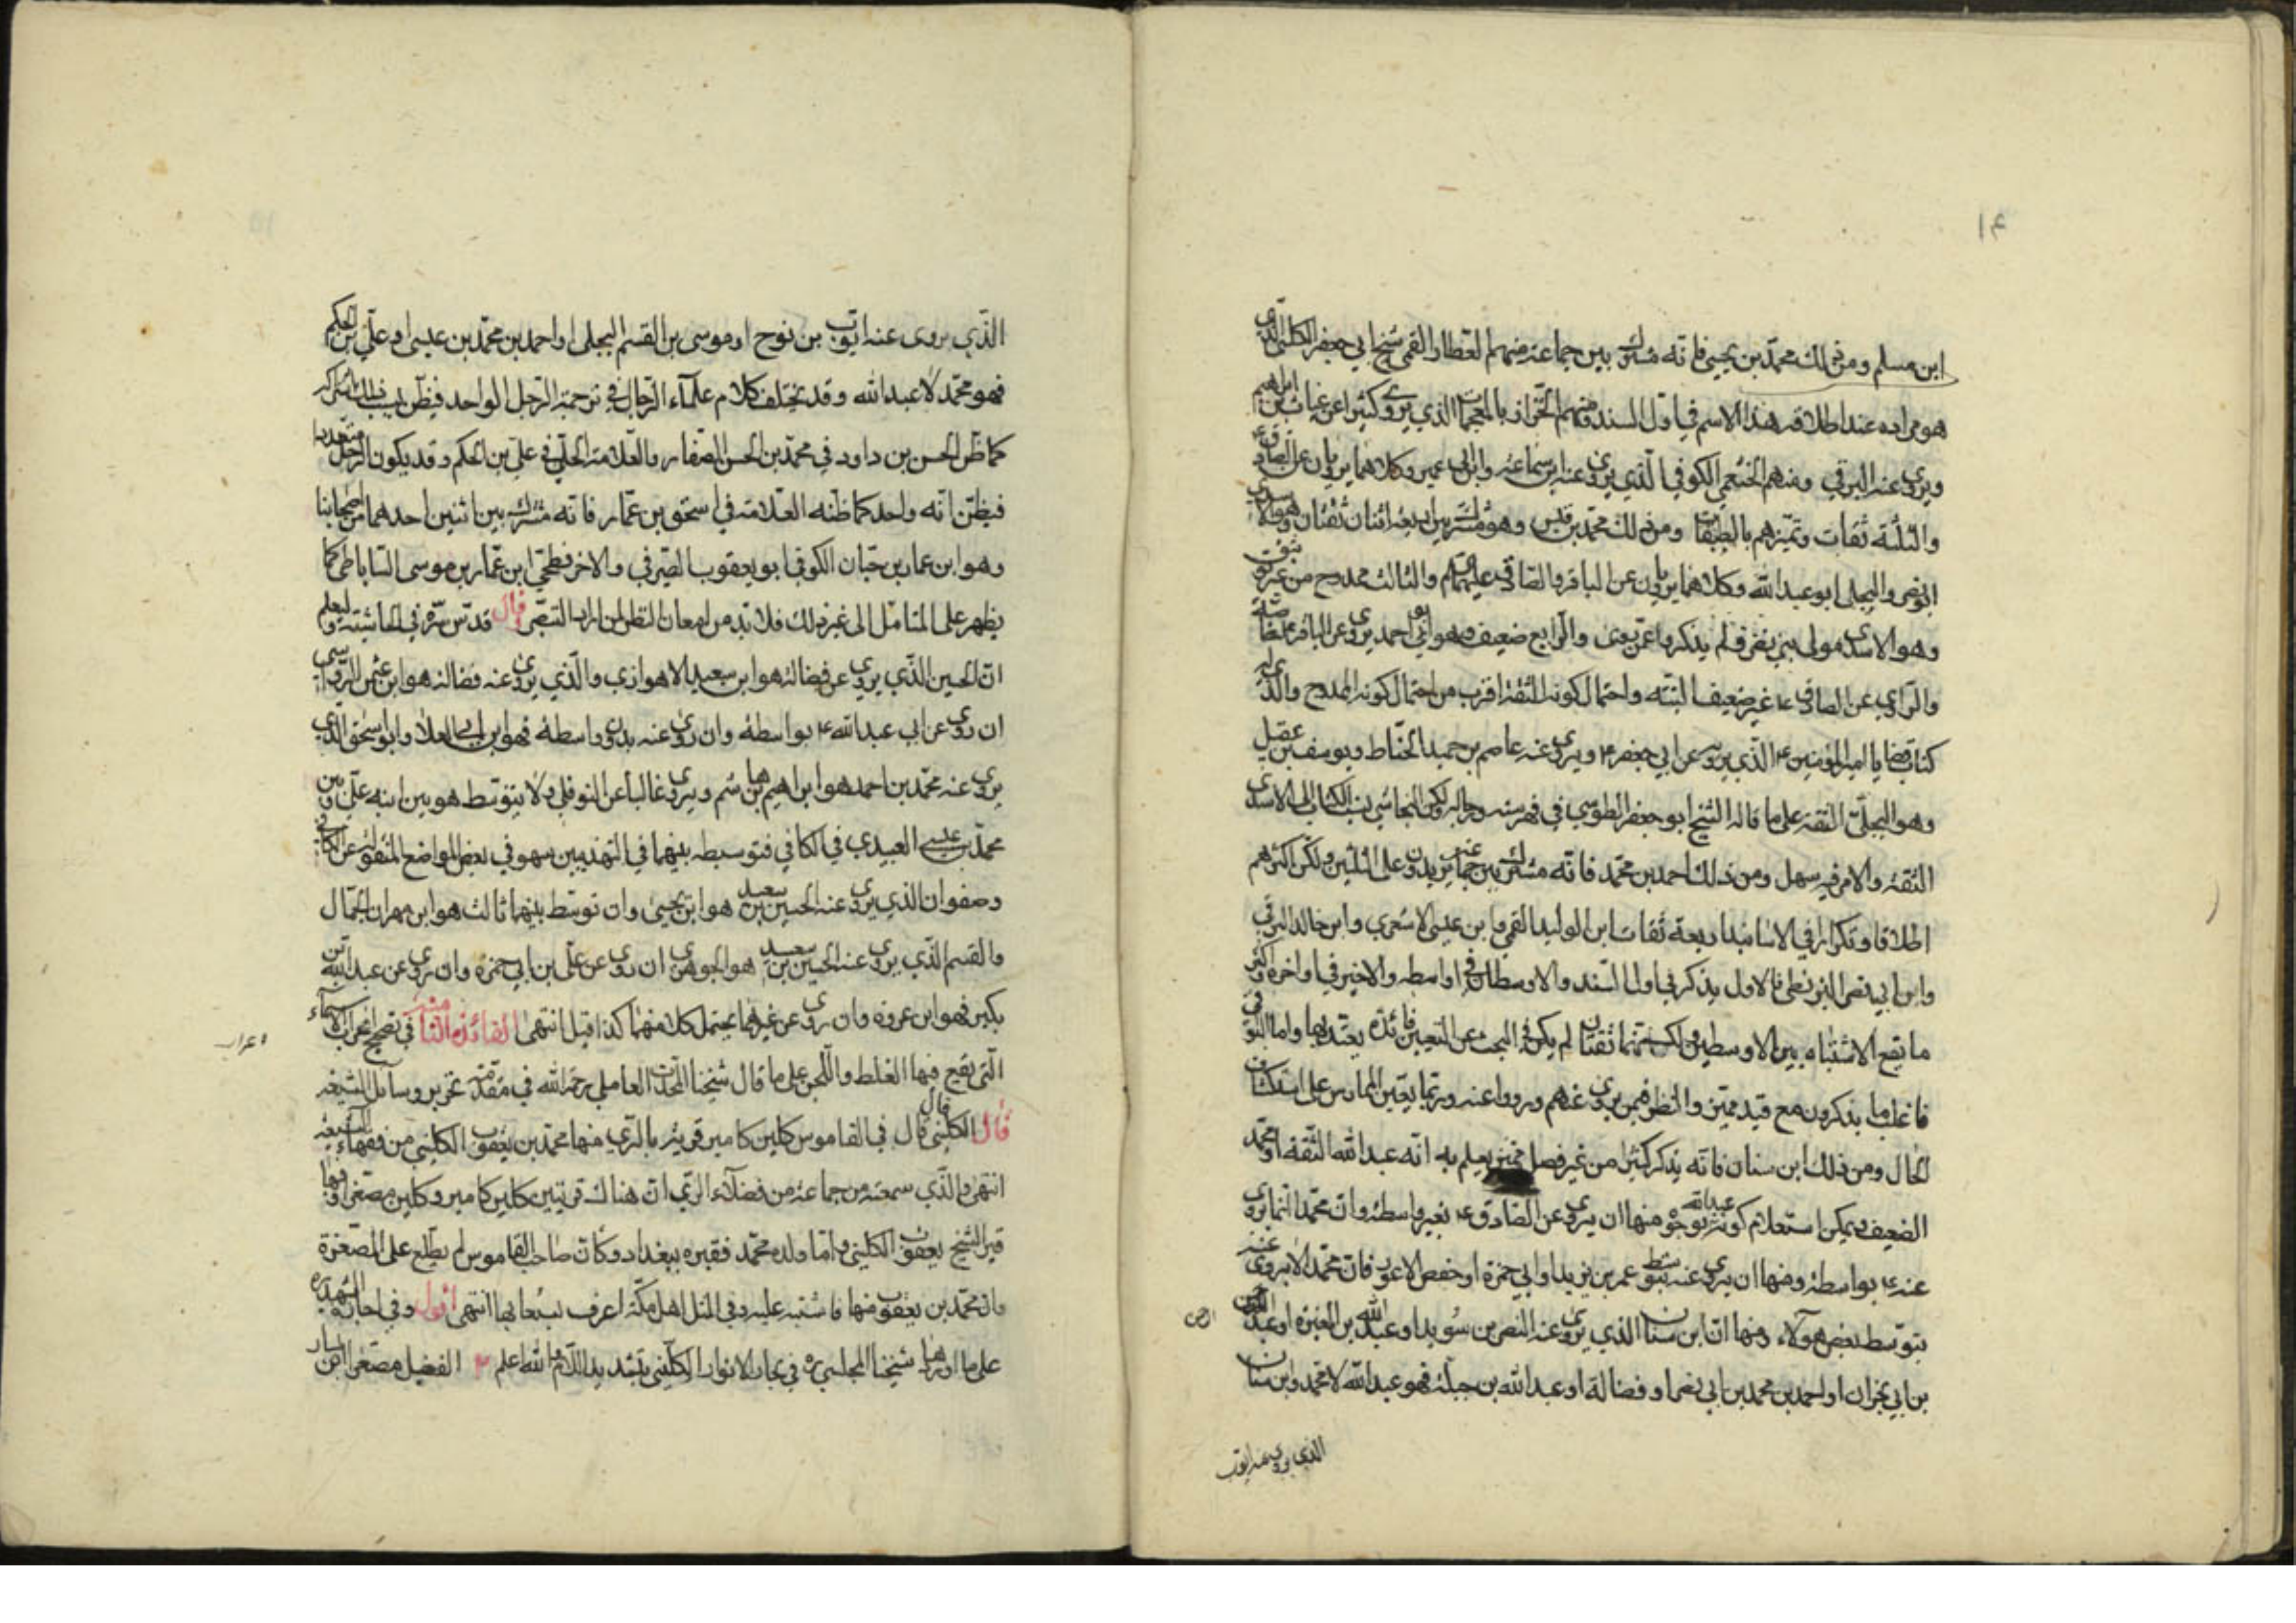 ١٤
ابن مسلم ومن ذلك محمّد بن يحيى فانّه مشترك بين جماعة منهم العطار القمي شيخ ابي جعفر الكليني الذي
هو مراده عند اطلاقه هذا الاسم في اول السند ومنهم الخزاز بالمعجمات الذي يروي كثيرا عن غياث بن ابراهيم
ويروي عنه البرقي ومنهم الخثعمي الكوفي الّذي يروي عنه ابن سماعة وابن ابي عمير وكلاهما يرويان عن الصادق ع
والثلثة ثقات وتميّزهم بالطبقات ومن ذلك محمّد بن قيس وهو مشترك بين اربعة اثنان ثقتان وهما الاسدي
ابو نصر والبجلي ابو عبد الله وكلاهما يرويان عن الباقر والصادق عليهما السلام والثالث ممدوح من غير توثيق
وهو الاسدي مولى بني نصر ولم يذكروا عمّن يروي والرابع ضعيف وهو ابو احمد يروي عن الباقر ع خاصّة
والراوي عن الصادق ع غير ضعيف البتة واحتمال كونه الثقة اقرب من احتمال كونه الممدوح والذي له
كتاب قضايا امير المؤمنين ع الّذي يرويه عن ابي جعفر ع ويروي عنه عاصم بن حميد الحنّاط ويوسف بن عقيل
وهو البجلي الثقة على ما قاله الشيخ ابو جعفر الطوسي في فهرسته ورجاله ولكن النجاشي نسب الكتاب الى الاسدي
الثقة والامر فيه سهل ومن ذلك احمد بن محمد فانّه مشترك بين جماعة يزيدون على الثلثين ولكن اكثرهم
اطلاقا وتكرارا في الاسانيد اربعة ثقات ابن الوليد القمي وابن عيسى الاشعري وابن خالد البرقي
وابن ابي نصر البزنطي فالاول يذكر في اول السند والاوسطان في اواسطه والاخير في اواخره واكثر
ما يقع الاشتباه بين الاوسطين ولكنهما ثقتان لم يكن في البحث عن التعيين فائدة يعتد بها واما البواقي
فاغلب ما يذكرون مع قيد مميّز والنظر فيمن يروي عنهم ورووا عنه وربما يعين الممارس على استكشاف
الحال ومن ذلك ابن سنان فانّه يذكر كثيرا من غير فصل مميز يعلم به انّه عبد الله الثقة او محمّد
الضعيف ويمكن استعلام كونه عبد الله بوجوه منها ان يروي عن الصادق ع بغير واسطة وان محمّدا انما يروي
عنه ع بواسطة ومنها ان يروي عنه بتوسط عمر بن يزيد او ابي حمزة او حفص الاعور فان محمّدا لا يروي عنه
بتوسّط بعض هؤلاء ومنها انّ ابن سنان الذي يروي عنه النضر بن سويد او عبد الله بن المغيرة او عبد الرحمن
بن ابي نجران او احمد بن محمد بن ابي نصر او فضالة او عبد الله بن جبلة فهو عبد الله لا محمّد وابن سنان
الذي يروي عنه ايوب
الّذي يروي عنه ايّوب بن نوح او موسى بن القسم البجلي او احمد بن محمّد بن عيسى او عليّ بن الحكم
فهو محمّد لا عبد الله وقد يختلف كلام علمآء الرّجال في ترجمة الرّجل الواحد فيظن بسبب ذلك اشتراكه
كما ظنّ الحسن بن داود في محمّد بن الحسن الصّفار والعلامة الحلي في علي بن الحكم وقد يكون الرّجل متعددا
فيظنّ انّه واحد كما ظنّه العلامة في اسحق بن عمّار فانّه مشترك بين اثنين احدهما من اصحابنا
وهو ابن عمار بن حيّان الكوفي ابو يعقوب الصّيرفي والاخر فطحيّ ابن عمّار بن موسى الساباطي كما
يظهر على المتامّل الى غير ذلك فلا بّد من امعان النظر لمن اراد التبصّر قال قدّس سرّه في الحاشية وليعلم
انّ الحسين الّذي يروي عن فضالة هو ابن سعيد الاهوازي والّذي يروي عنه فضالة هو ابن عثمن الرّواسي
ان روى عن ابي عبد الله ع بواسطة وان روى عنه بدون واسطة فهو ابن ابي العلاء وابو اسحق الذي
يروي عنه محمّد بن احمد هو ابراهيم بن هاشم ويروي غالبا عن النوفلي ولا يتوسّط هو بين ابنه علي وبين
محمّد بن عيسى العبيدي في الكافي فتوسيطه بينهما في التهذيبين سهو في بعض المواضع المنقولة عن الكافي
وصفوان الذي يروي عنه الحسين بن سعيد هو ابن يحيى وان توسّط بينهما ثالث هو ابن مهران الجمّال
والقسم الّذي يروي عنه الحسين بن سعيد هو الجوهري ان روى عن علي بن ابي حمزة وان روى عن عبد الله بن
بكير فهو ابن عروة وان روى عن غيرهما يحتمل كلا منهما كذا قيل انتهى الفائدة الثانية عشر في تصحيح اعراب الاسماء
الّتي يقع فيها الغلط واللّحن على ما قال شيخنا المحدّث العاملي رحمه الله في مقدّمة تحرير وسائل الشيعة
قال الكليني قال في القاموس كلين كامير قرية بالرّي منها محمّد بن يعقوب الكليني من فقهاء الشيعة
انتهى والّذي سمعته من جماعة من فضلاء الرّي انّ هناك قريتين كلين كامير وكلين مصغرا وفيها
قبر الشيخ يعقوب الكليني وامّا ولده محمّد فقبره ببغداد وكأنّ صاحب القاموس لم يطّلع على المصغرة
وان محمّد بن يعقوب منها فاشتبه عليه وفي المثل اهل مكّة اعرف بشعابها انتهى اقول وفي اجازة الشهيد ره
على ما اورده شيخنا المجلسي ره في بحار الانوار الكلّيني بتشديد اللّام والله اعلم الفضيل مصغرا ابن يسار
اعراب